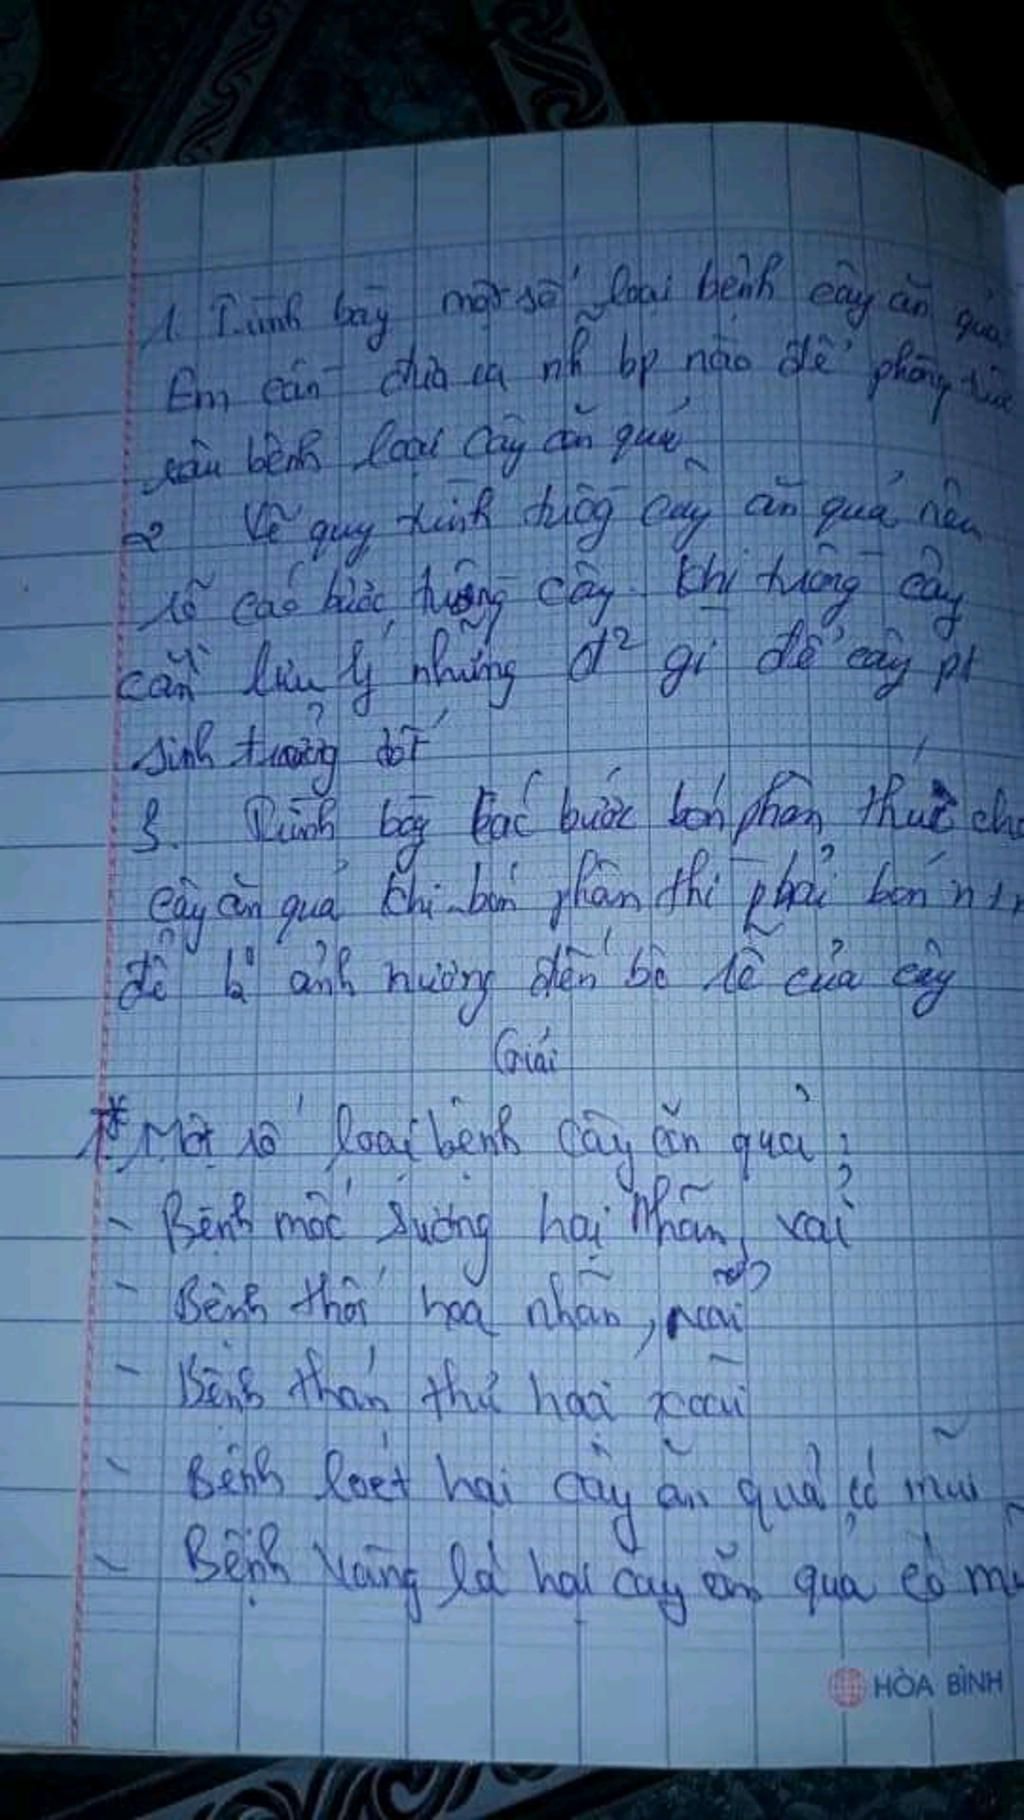 1. Trình bày một số loại bệnh cây ăn quả
Em cần đưa ra nh bp nào để phòng trừ
sâu bệnh loại cây ăn quả
2 Vẽ quy trình trồng cây ăn quả nêu
rõ các bước trồng cây. Khi trồng cây
cần lưu ý những đ² gì để cây pt
sinh trưởng tốt
3. Trình bày các bước bón phân thúc cho
cây ăn quả khi bón phân thì phải bón ntn
để ảnh hưởng đến bộ rễ của cây
Giải
1* Một số loại bệnh cây ăn quả:
- Bệnh mốc sương hại nhãn, vải
- Bệnh thối hoa nhãn, vải
- Bệnh thán thư hại xoài
- Bệnh loét hại cây ăn quả có múi
- Bệnh vàng lá hại cây ăn quả có
HÒA BÌNH